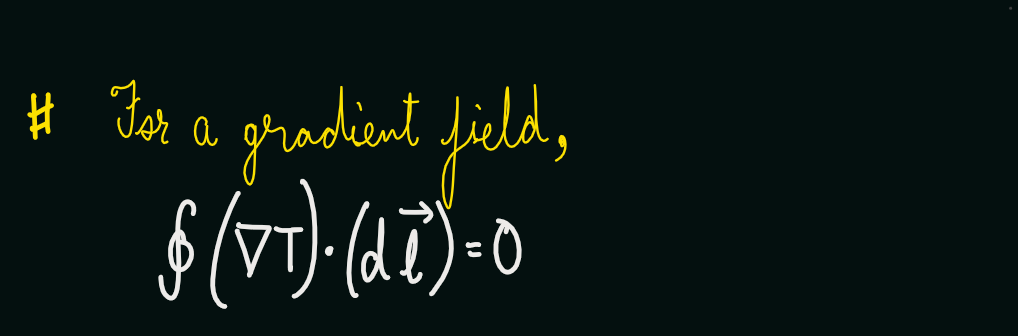 # For a gradient field,
∮(∇T)·(dl⃗)=0